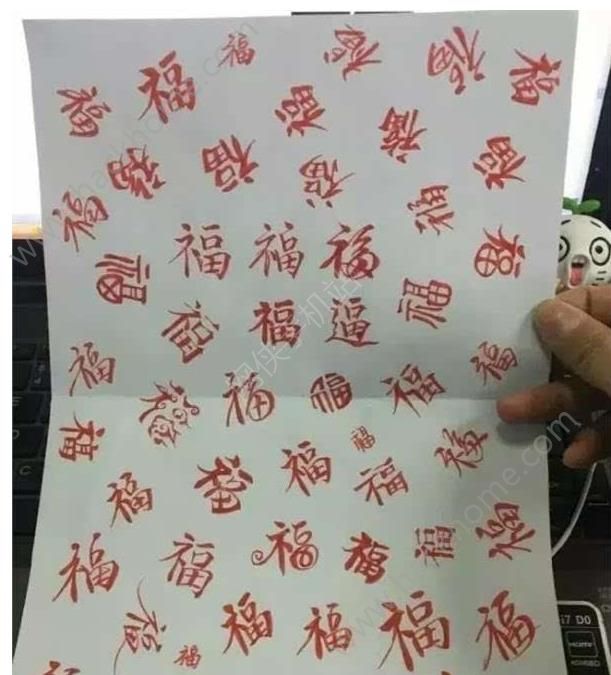 福 福 福 福 福 福
福 福
福 福 福 福 福
福 福
福 福 福 福
福 福 福
福 福 福 福
福 福 福 福 福
福 福 福
福 福 福 福
福 福
福 福 福 福 福 福
福 福 福 福 福 福
福 福
www.hackhome.com
i7 D0
HDMI